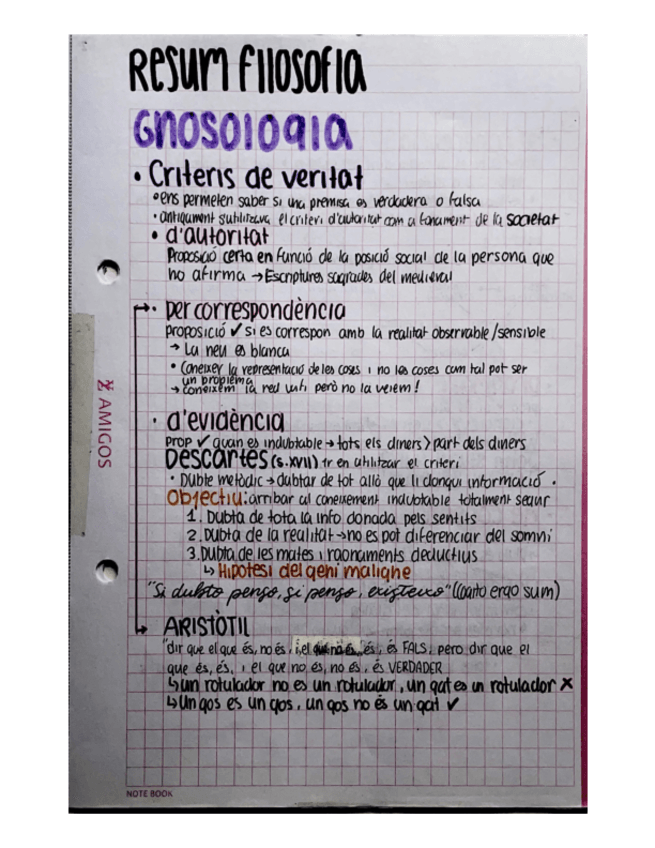 Resum filosofia
Gnosologia
• Criteris de veritat
• ens permeten saber si una premisa es verdadera o falsa
• antiguament s'utilitzava el criteri d'autoritat com a fonament de la societat
• d'autoritat
Proposició certa en funció de la posició social de la persona que
ho afirma → Escriptures sagrades del medieval
• per correspondència
proposició ✓ si es correspon amb la realitat observable/sensible
→ La neu es blanca
• Coneixer la representació de les coses i no les coses com tal pot ser
un problema
→ coneixem la red wifi però no la veiem!
• d'evidència
Prop ✓ quan es indubtable → tots els diners > part dels diners
Descartes (s.XVII) 1r en utilitzar el criteri
• Dubte metòdic → dubtar de tot allò que li donqui informació.
Objectiu: arribar al coneixement indubtable totalment segur
1. Dubta de tota la info donada pels sentits
2. Dubta de la realitat → no es pot diferenciar del somni
3. Dubta de les mates i raonaments deductius
↳ Hipotesi del geni maligne
"Si dubto penso, si penso, existeixo" (Cogito ergo sum)
ARISTÒTIL
"dir que el que és, no és, i el que no és, és, és FALS, pero dir que el
que és, és, i el que no és, no és, és VERDADER
↳ un rotulador no es un rotulador, un gat es un rotulador X
↳ Un gos es un gos, un gos no és un gat ✓
AMIGOS
NOTE BOOK